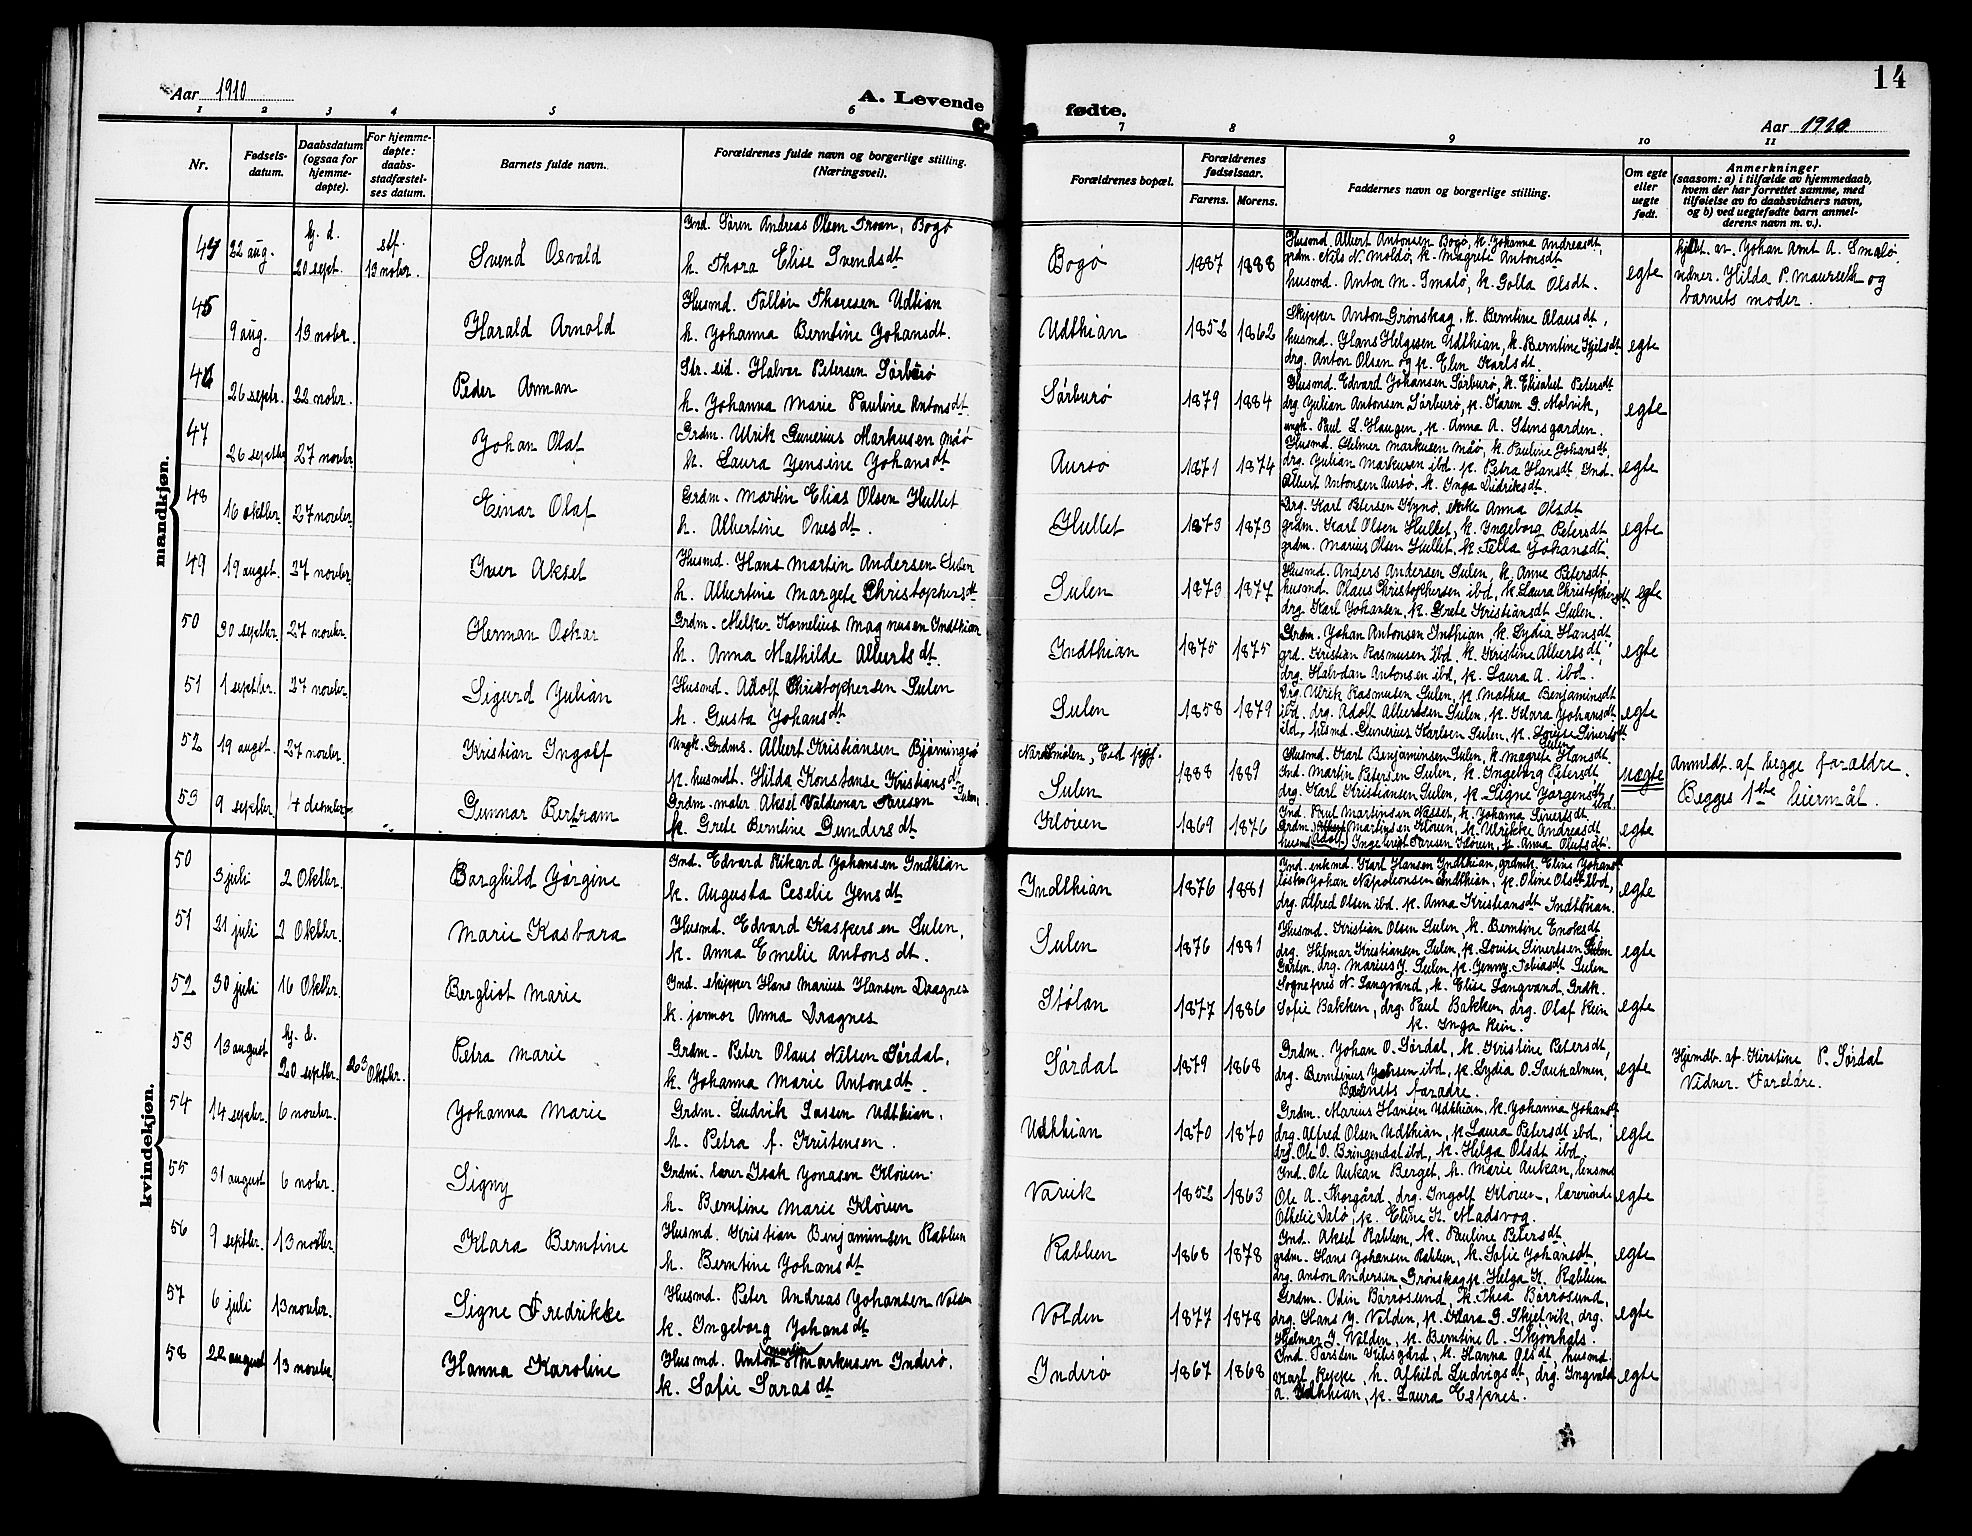 14
Aar 1910
A. Levende
fødte.
Aar 1910
1 2 3 4 5 6
7 8 9 10 11
Nr.
Fødsels-
datum.
Daabsdatum
(ogsaa for
hjemme-
døpte).
For hjemme-
døpte:
daabs-
stadfæstel-
ses datum.
Barnets fulde navn.
Forældrenes fulde navn og borgerlige stilling.
(Næringsvei).
Forældrenes bopæl.
Forældrenes
fødselsaar.
Farens. Morens.
Faddernes navn og borgerlige stilling.
Om egte
eller
uegte
født.
Anmerkninger
(saasom: a) i tilfælde av hjemmedaab,
hvem der har forrettet samme, med
tilføielse av to daabsvidners navn,
og b) ved uegtefødte barn anmel-
derens navn m. v.).
mandkjøn.
22 aug.
hj. d.
20 sept.
stf.
13 nobr.
Svend Osvald
Ind. Sören Andreas Olsen Troan, Bogø
k. Thora Elise Svendsdt
Bogö
1887 1888
Husmd. Albert Antonsen Bogø, k. Johanna Andreasdt,
grdm. Nils N. Moldö, k. Magrete Antonsdt
husmd. Anton M. Smalø, k. Golla Olsdt.
egte
hjdt. av. Johan Arnt A. Smalø
vidner. Hilda P. Maurseth og
barnets moder.
45
9 aug.
13 nobr.
Harald Arnold
Husmd. Tollör Thoresen Udthian
k. Johanna Berntine Johansdt.
Udthian
1852 1862
Skipper Anton Grönskag, k. Berntine Olausdt,
husmd. Hans Helgesen Udthian, k. Berntine Kjelsdt
drg. Anton Olsen og p. Elen Karlsdt.
egte
46
26 septbr.
22 nobr.
Peder Arman
Str. eid. Halvor Petersen Sörburö
k. Johanna Marie Pauline Antonsdt.
Sörburö
1879 1884
Husmd. Edvard Johansen Sörburö, k. Elisabet Petersdt
drg. Julian Antonsen Sörburö, p. Karen G. Molvik,
ungk. Paul L. Haugen, p. Anna A. Stensgarden.
egte
47
26 septbr
27 novbr.
Johan Olaf
Grdm. Ulrik Gunerius Markusen Måø
k. Laura Jensine Johansdt
Aursö
1871 1874
Husmd. Helmer Markusen Måø, k. Pauline Johansdt,
drg. Julian Markusen ibd. p. Petra Hansdt Ind.
Albert Antonsen Aursö, k. Inga Didriksdt.
egte
48
16 oktbr.
27 novbr.
Einar Olaf
Grdm. Martin Elias Olsen Hullet
k. Albertine Ovesdt.
Hullet
1873 1873
Drg. Karl Petersen Kynö, enke Anna Olsdt
grdm. Karl Olsen Hullet, k. Ingeborg Petersdt
grdm. Marius Olsen Hullet, k. Tella Johansdt.
egte
49
19 augst.
27 novbr
Iver Aksel
Husmd. Hans Martin Andersen Sulen
k. Albertine Margete Christophersdt
Sulen
1873 1877
Husmd. Anders Andersen Sulen, k. Anne Petersdt
husmd. Olaus Christophersen ibd, k. Laura Christophersdt
drg. Karl Johansen, k. Grete Kristiansdt Sulen.
egte
50
30 septbr.
27 novbr.
Herman Oskar
Grdm. Melker Kornelius Magnusen Indthian
k. Anna Mathilde Albertsdt.
Indthian
1875 1875
Grdm. Johan Antonsen Inthian, k. Lydia Hansdt,
grd. Kristian Rasmusen ibd. k. Kristine Albertsdt,
drg. Halvdan Antonsen ibd, k. Laura A. ibd.
egte
51
1 septbr.
27 novbr.
Sigurd Julian
Husmd. Adolf Christophersen Sulen
k. Gusta Johansdt
Sulen
1858 1879
Drg. Ulrik Rasmusen Sulen, p. Mathea Benjaminsdt
ibd. drg. Adolf Albertsen Sulen, p. Klara Johansdt
ibd, husmd. Gunerius Karlsen Sulen, p. Louise Sivertsdt
Sulen
egte
52
19 augst.
27 novbr.
Kristian Ingolf
Ungk. Grdms. Albert Kristiansen Björningsö
p. husmdt. Hilda Konstanse Kristiansdt Sulen,
Nordsmölen, Eid pgj.
Sulen
1888 1889
Husmd. Karl Benjaminsen Sulen, k. Magrete Hansdt.
Ind. Martin Petersen Sulen, k. Ingeborg Petersdt
drg. Karl Kristiansen Sulen, p. Signe Jörgensdt ibd.
uegte
Anmeldt. af begge forældre.
Begges 1ste leiermål.
53
9 septbr
4 desmbr
Gunnar Bertram
Grdm. maler Aksel Valdemar Toresen
k. Grete Berntine Gundersdt
Klöven
1869 1876
Ind. Paul Martinsen Nesset, k. Johanna Sivertsdt
Grdm. Martinsen Klöven, k. Ulrikke Andreasdt
husmd Adolf Ingebrigt Toresen Klöven, p. Anna Olufsdt.
egte
kvindekjøn.
50
3 juli
2 Oktbr.
Borghild Jörgine
Ind. Edvard Rikard Johansen Indthian
k. Augusta Ceselie Jensdt
Indthian
1876 1881
Ind. enkmd. Karl Hansen Indthian, grdmk. Eline Johansdt
löskr Johan Napoleonsen Indthian, p. Oline Olsdt ibd,
drg. Alfred Olsen ibd. p. Anna Kristiansdt Indthian.
egte
51
21 juli
2 Oktbr.
Marie Kasbara
Husmd. Edvard Kaspersen Sulen,
k. Anna Emelie Antonsdt.
Sulen
1876 1881
Husmd. Kristian Olsen Sulen, k. Berntine Enoksdt
drg. Hilmar Kristiansen Sulen, p. Louise Sivertsen Sulen
Garten. drg. Marius J. Sulen, p. Jenny Tobiasdt Sulen
egte
52
30 juli
16 Oktbr.
Bergliot Marie
Ind. skipper Hans Marius Hansen Dragnes
k. jormor Anna Dragnes
Stölan
1877 1886
Sognepris N. Langvand, k. Elise Langvand, Grdk.
Sofie Bakken, drg. Paul Bakken, drg. Olaf Rein
k. Inga Rein.
egte
53
13 august
hj. d.
20 septbr.
23 Oktbr.
Petra Marie
Grdm. Peter Olaus Nilsen Sördal,
k. Johanna Marie Antonsdt.
Sördal
1879 1868
Grdm. Johan O. Sördal, k. Kristine Petersdt,
drg. Berntinus Jensen ibd, p. Lydia O. Sauholmen,
Barnets foradre.
egte
Hjemdb. af Kirstine P. Sördal
Vidner. Foreldre.
54
14 septbr.
6 novbr.
Johanna Marie
Grdm. Ludvik Sassen Udthian,
k. Petra f. Kristensen.
Udthian
1870 1870
Grdm. Marius Hansen Udthian, k. Johanna Johansdt
drg. Alfred Olsen Udthian, p. Laura Petersdt ibd.
drg. Ole O. Bringendal ibd, k. Helga Olsdt ibd.
egte
55
31 august
6 nobr.
Signy
Grdm. lærer Isak Jonasen Klöven.
k. Berntine Marie Klöven
Varvik
1852 1863
Ind. Ole Aukan Berget, k. Marie Aukan, lensmd
Ole A. Thorgård, drg. Ingolf Klöven, lærerinde
Othelie Dalö, p. Eline K. Madsvog.
egte
56
9 septbr.
13 novbr.
Klara Berntine
Husmd. Kristian Benjaminsen Rabben
k. Berntine Johansdt
Rabben
1868 1878
Ind. Aksel Rabben, k. Pauline Petersdt
grdm. Hans Johansen Rabben, k. Sofie Johansdt,
drg. Anton Andersen Grönskag p. Helga K. Rabben
egte
57
6 juli
13 novbr.
Signe Fredrikke
Husmd. Peter Andreas Johansen Volden
k. Ingeborg Johansdt
Volden
1877 1878
Grdm. Odin Barrosund, k. Thea Barrosund,
drg. Hans J. Volden, p. Klara G. Skjelvik, drg.
Hjalmar J. Volden, p. Berntine A. Skjönhals.
egte
58
22 august
13 novbr
Hanna Karoline
Husmd. Anton Martin Markusen Inderö.
k. Sofie Sarasdt
Inderö
1867 1868
Ind. Torsten Nilsgård, k. Hanna Olsdt, husmd.
Karl Reppe, k. Afhild Ludvigsdt, drg. Ingvald
A. Udthian, p. Laura Espnes.
egte